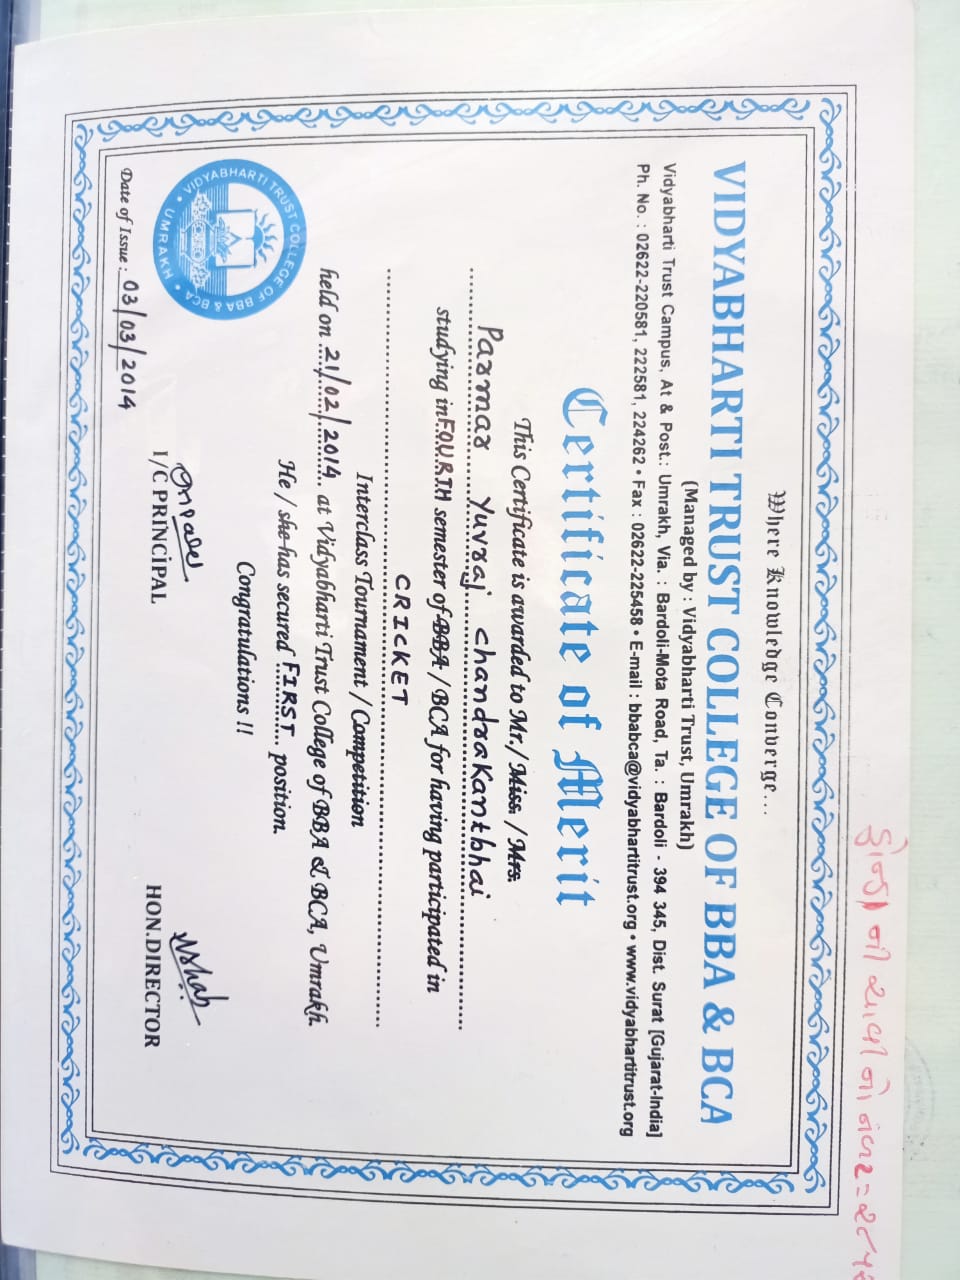 ની ચાવી નો નંબર = ૨૮
Where Knowledge Converge...
VIDYABHARTI TRUST COLLEGE OF BBA & BCA
(Managed by : Vidyabharti Trust, Umrakh)
Vidyabharti Trust Campus, At & Post.: Umrakh, Via. : Bardoli-Mota Road, Ta. : Bardoli - 394 345, Dist. Surat [Gujarat-India]
Ph. No. : 02622-220581, 222581, 224262 • Fax : 02622-225458 • E-mail : bbabca@vidyabhartitrust.org • www.vidyabhartitrust.org
Certificate of Merit
This Certificate is awarded to Mr./ Miss. / Mrs.
Parmar Yuvraj Chandrakantbhai
studying in FOURTH semester of BBA / BCA for having participated in
CRICKET
Interclass Tournament / Competition
held on 21/02/2014 at Vidyabharti Trust College of BBA & BCA, Umrakh.
He / she has secured FIRST position.
Congratulations !!
VIDYABHARTI TRUST COLLEGE OF BBA & BCA
• UMRAKH •
I/C PRINCIPAL
HON.DIRECTOR
Date of Issue : 03/03/2014